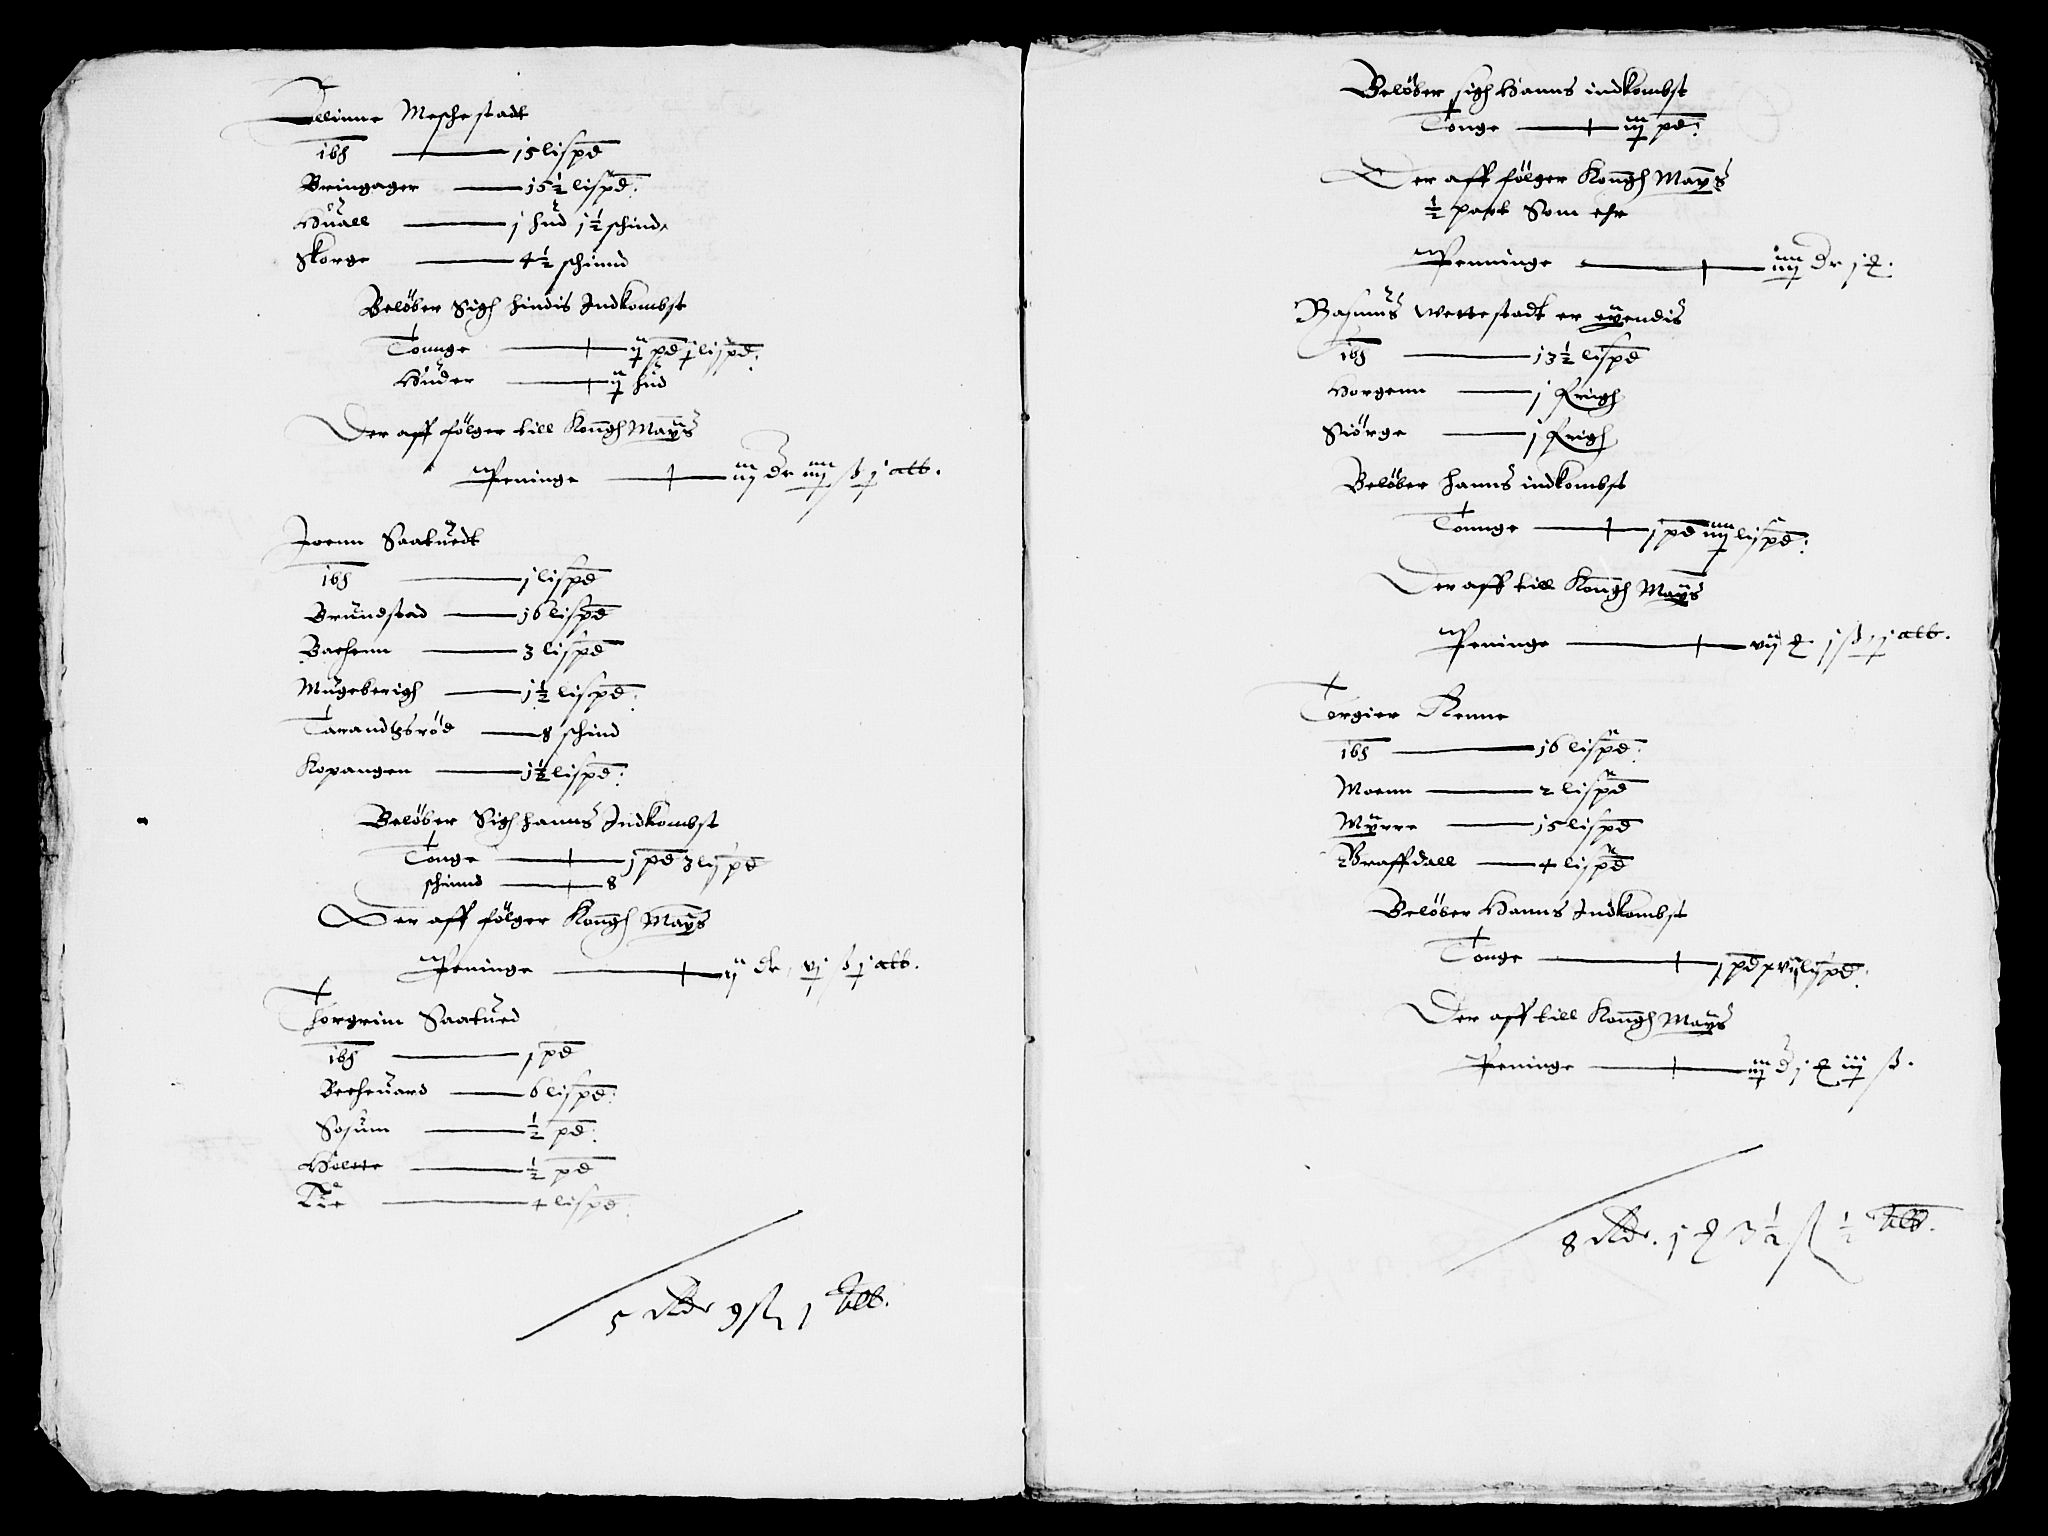 Ellinne Meschestadt
ibš —— 15 lispd
Bringager —— 15½ lispd:
Huall —— j hud j½ schind
Skorge —— 4½ schinnd
Beløber Sigh hindis Indkombst
Tonnge —— ij pd j lispd:
Huder —— ij hud
Der aff følger till Kongh Mays
Peninge —— iij dr iiij ß j alb.
Joenn Saatuedt
ibš —— j lispd
Brundstad —— 16 lispd
Bachenn —— 3 lispd
Mugeberigh —— 1½ lispd:
Tarandtzrød —— 8 schind
Kopangen —— 1½ lispd:
Beløber Sigh hanns Indkombst
Tonge —— j pd 3 lispd
schinnd —— 8
Der aff følger Kongh Mays
Peninge —— ij dr, vj ß j alb.
Torgrim Saatued
ibš —— 1 pd
Becheuard —— 6 lispd:
Sosum —— ½ pd:
Holtte —— ½ pd
—— 4 lispd:
5 Rdr 9 ß 1 alb.
Beløber sigh Hanns indkombst
Tonge —— iij pd:
Der aff følger Kongh Mays
½ part Som ehr
Penninge —— iiij dr j
Rasmus Wettestadt er øyendis
ibš —— 13½ lispd
Horgenn —— j
Siørge —— j
Beløber hanns indkombst
Tonnge —— j pd iiij lispd:
Der aff till Kongh Mays
Peninge —— vij j ß j alb.
Torgier Renne
ibš —— 16 lispd:
Moenn —— 2 lispd
Myrre —— 15 lispd
Graffdall —— 4 lispd
Beløber Hanns Indkombst
Tonge —— j pd xvij lispd:
Der aff till Kongh Mays
Peninge —— iij d j iij ß.
8 Rdr. 1 3½ ß ½ alb.